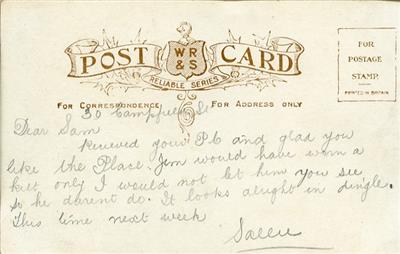 POST CARD
W R & S
RELIABLE SERIES
FOR CORRESPONDENCE
FOR ADDRESS ONLY
FOR
POSTAGE
STAMP.
PRINTED IN BRITAIN
30 St
Dear Sam
your P.C and glad you
like the Place. Jim would have worn a
but only I would not let him you see
so he darent do. It looks alright in dingle.
This time next week
Sallie